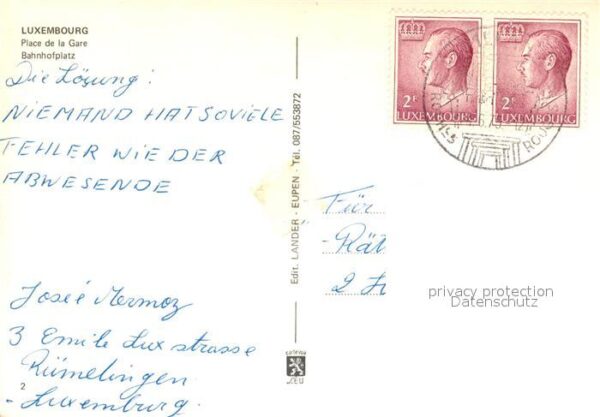 LUXEMBOURG
Place de la Gare
Bahnhofplatz
Die Lösung:
NIEMAND HAT SOVIELE
FEHLER WIE DER
ABWESENDE
Joseé Mermoz
3 Emile Lux strasse
Rümelingen
-Luxemburg.
2
Edit. LANDER - EUPEN - Tél. 087/553872
2F
LUXEMBOURG
2F
LUXEMBOURG
Für
-Rät
2
privacy protection
Datenschutz